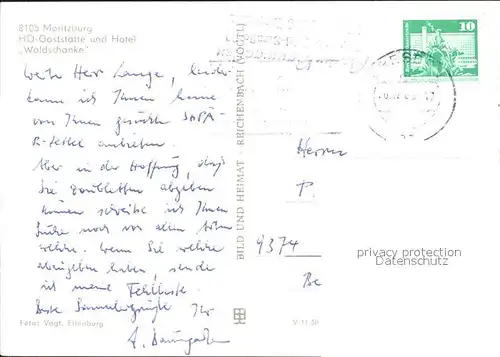 8105 Moritzburg
HO-Gaststätte und Hotel
„Waldschänke"
Werte Herr Lange, leider
kann ich Ihnen keine
von Ihnen gesuchten
anbieten.
Aber in der Hoffnung, daß
Sie Doubletten abgeben
können schreibe ich Ihnen
Suche noch vor allem
welche. Wenn Sie welche
abzugeben haben, sende
ich meine Fehlliste.
Beste Sammlergrüße Ihr
A. Baumgarten
Foto: Vogt, Eilenburg
BILD UND HEIMAT REICHENBACH (VOGTL)
V 11 50
10
Herrn
P.
9374
privacy protection
Datenschutz